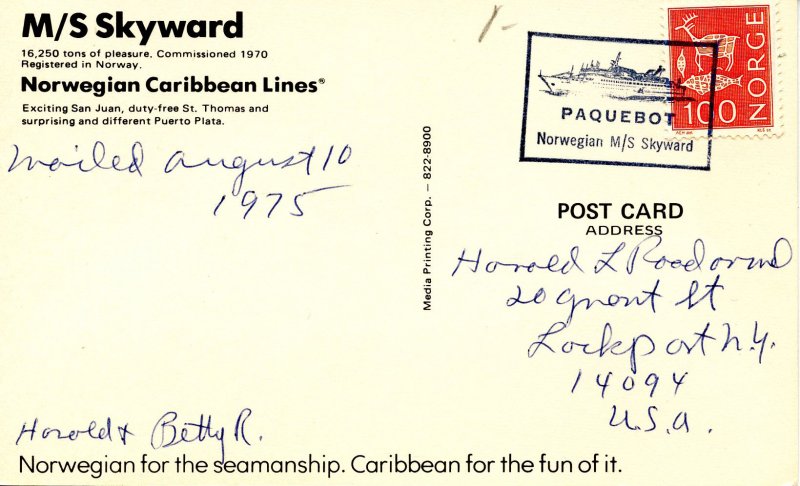 M/S Skyward
16,250 tons of pleasure. Commissioned 1970
Registered in Norway.
Norwegian Caribbean Lines®
Exciting San Juan, duty-free St. Thomas and
surprising and different Puerto Plata.
mailed august 10
1975
Harold & Betty R.
Norwegian for the seamanship. Caribbean for the fun of it.
Media Printing Corp. — 822-8900
1-
PAQUEBOT
Norwegian M/S Skyward
NORGE
100
POST CARD
ADDRESS
Harold L Roodarmel
20 Grant St
Lockport N.Y.
14094
U.S.A.